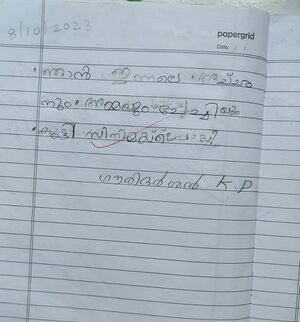 8/10/2023
papergrid
Date: / /
ഞാൻ ഇന്നലെ അച്ഛ
നും അമ്മയും ചേച്ചിയും
കൂട്ടി സിനിമയ്ക്ക് പോയി
ഗൗതിദർശൻ K.P